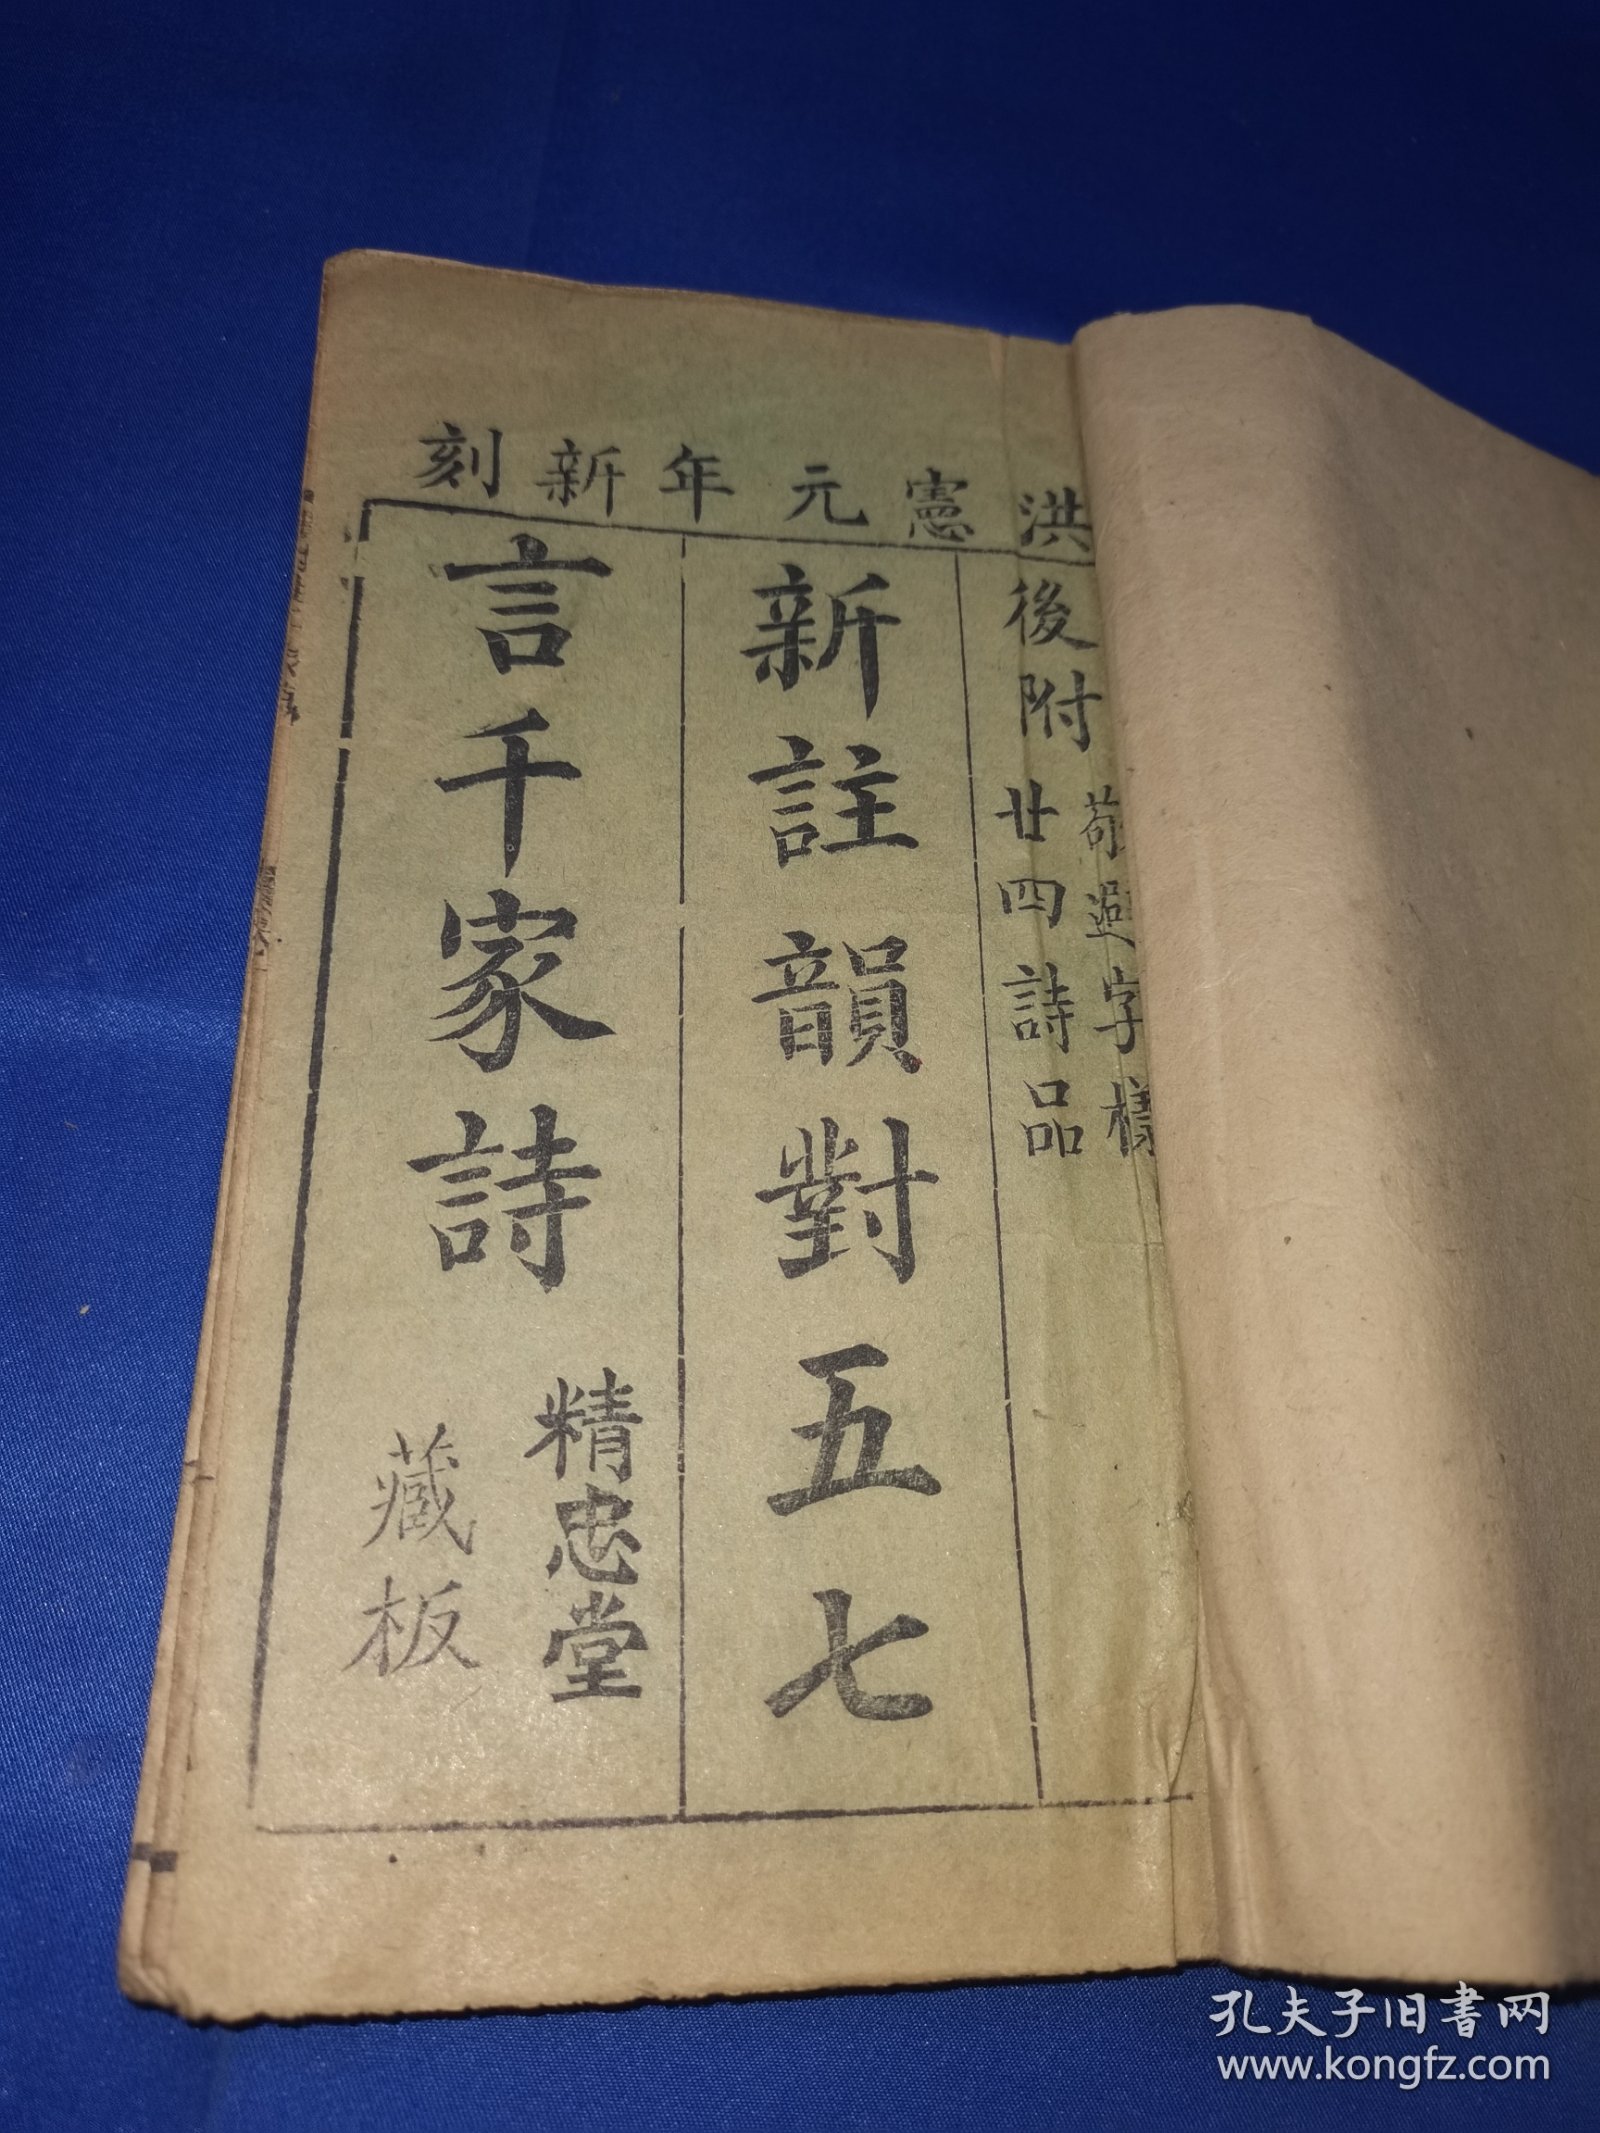 洪憲元年新刻
後附
避字樣
廿四詩品
新註韻對五七
言千家詩
精忠堂
藏板
孔夫子旧书网
www.kongfz.com